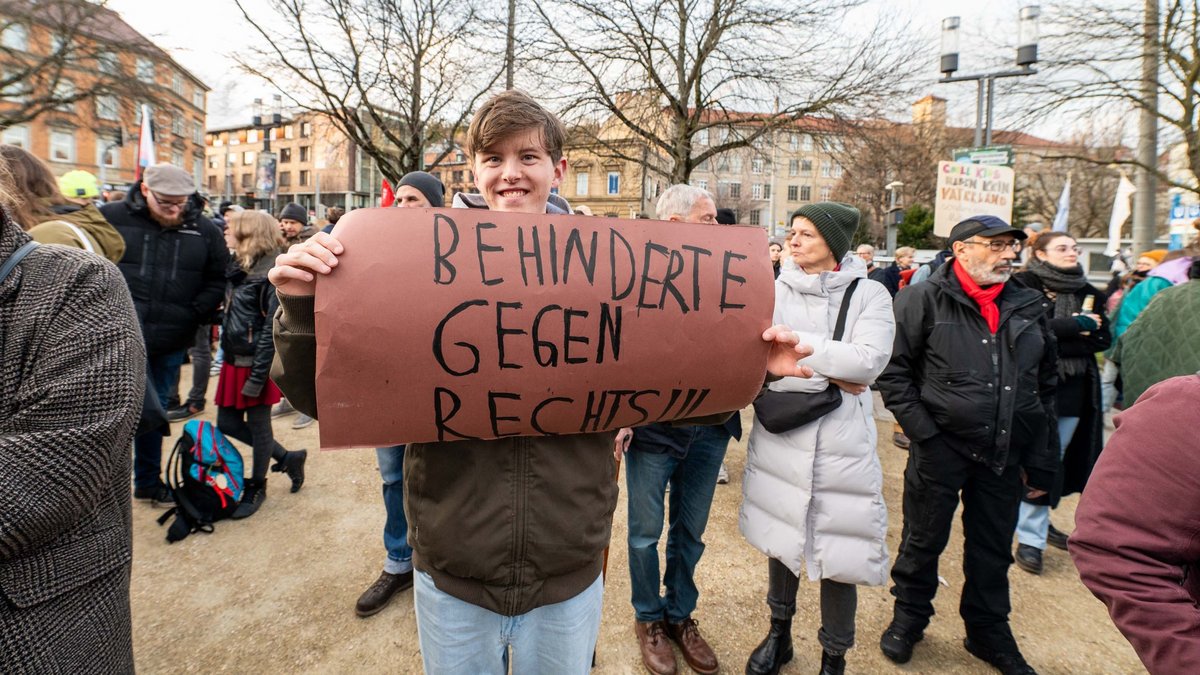 BEHINDERTE
GEGEN
RECHTS!!!
CHILL
HABEN KEIN
VATERLAND